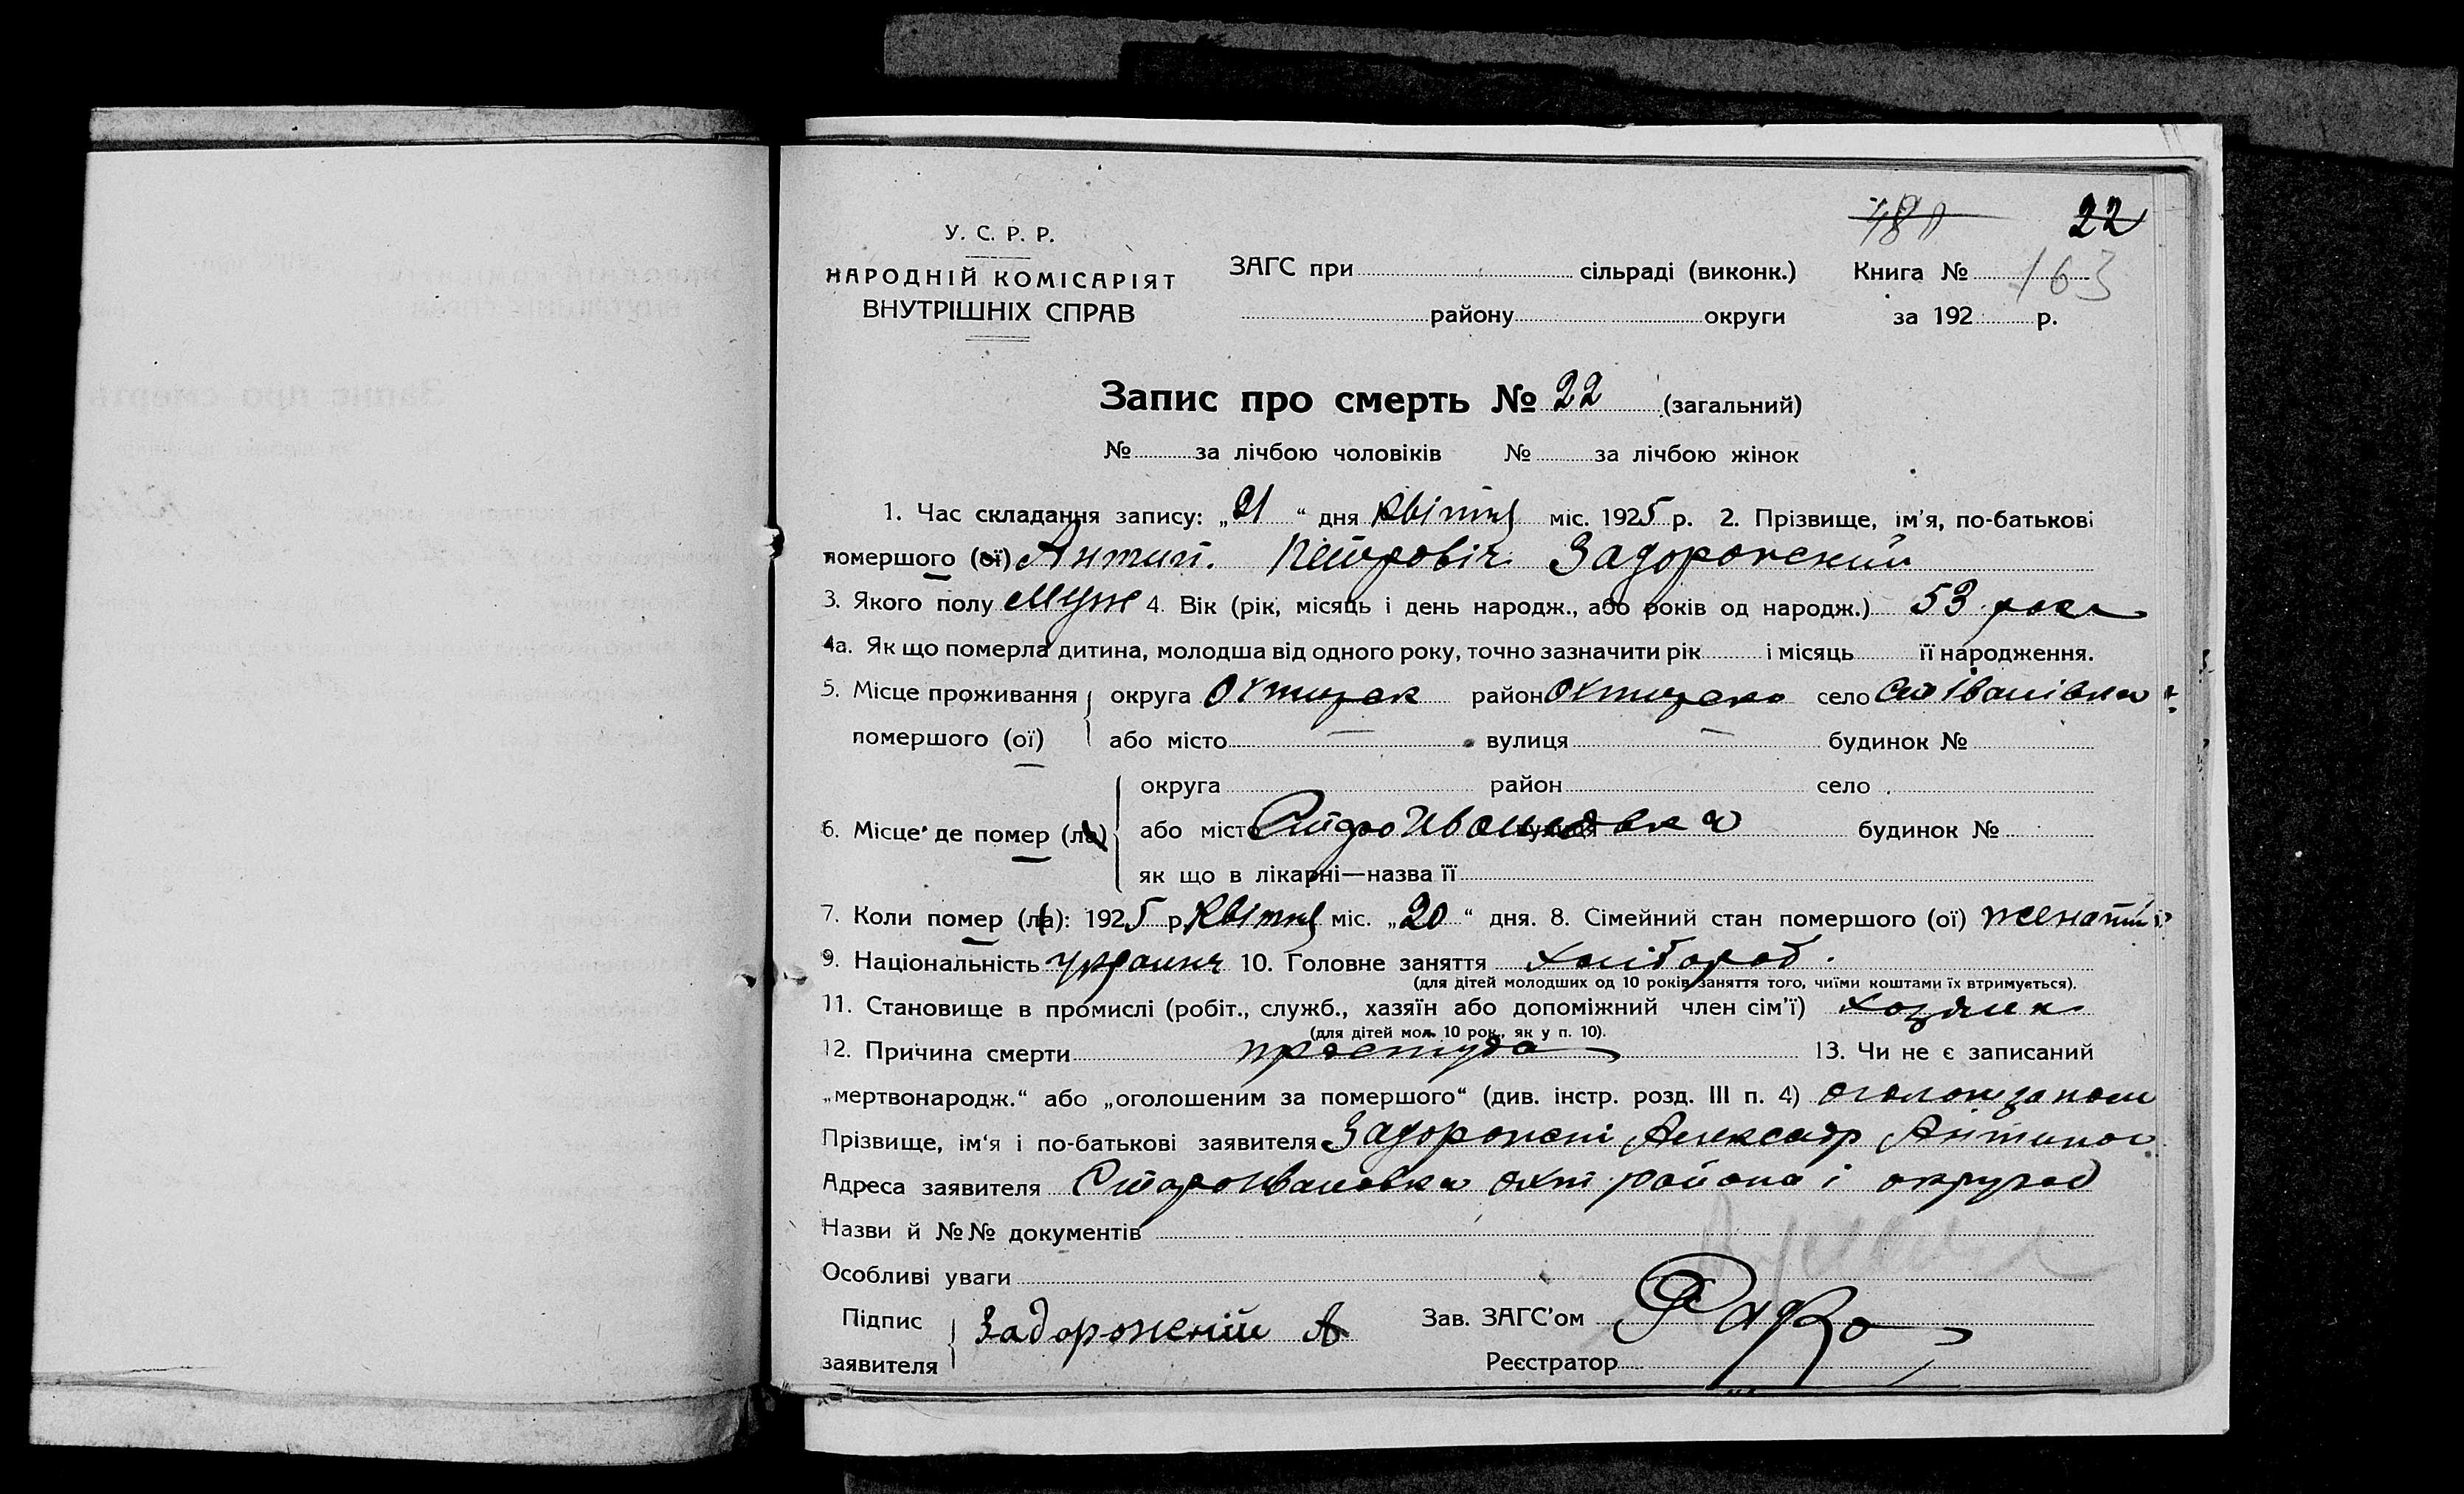 480 22
У. С. Р. Р.
НАРОДНІЙ КОМІСАРІЯТ
ВНУТРІШНІХ СПРАВ
ЗАГС при сільраді (виконк.) Книга № 163
району округи за 192 р.
Запис про смерть № 22 (загальний)
№ за лічбою чоловіків № за лічбою жінок
1. Час складання запису: „21“ дня Квітня міс. 1925 р. 2. Прізвище, ім'я, по-батькові
помершого (ої) Антип. Петровіч Задорожский
3. Якого полу Муж 4. Вік (рік, місяць і день народж., або років од народж.) 53 рока
4а. Як що померла дитина, молодша від одного року, точно зазначити рік і місяць її народження.
5. Місце проживання округа Охтирск район Охтирско село Ст Іванівка
помершого (ої) або місто — вулиця — будинок №
округа район село
6. Місце де помер (ла) або місто СтароИвановка вулиця будинок №
як що в лікарні—назва її
7. Коли помер (ла): 1925 р. Квітня міс. „20“ дня. 8. Сімейний стан помершого (ої) женатий
9. Національність 10. Головне заняття Хлібороб.
(для дітей молодших од 10 років заняття того, чиїми коштами їх втримується).
11. Становище в промислі (робіт., служб., хазяїн або допоміжний член сім'ї)
(для дітей мол. 10 рок., як у п. 10).
12. Причина смерти простуда 13. Чи не є записаний
„мертвонародж.“ або „оголошеним за помершого“ (див. інстр. розд. III п. 4)
Прізвище, ім'я і по-батькові заявителя Задорожні Александр Антипов
Адреса заявителя СтароИвановка охт района і округов
Назви й №№ документів
Особливі уваги
Підпис заявителя Задорожний А Зав. ЗАГС'ом
Реєстратор